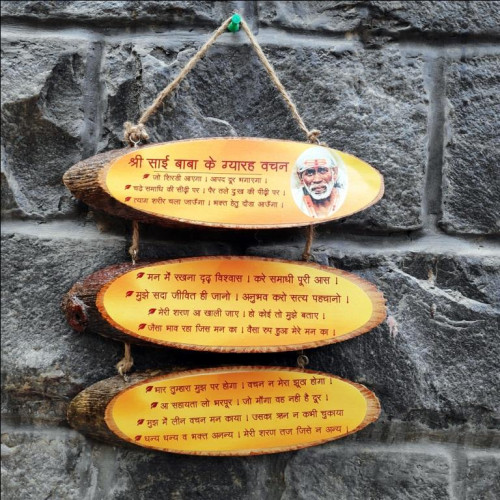 श्री साई बाबा के ग्यारह वचन
जो शिरडी आएगा । आपद दूर भगाएगा ।
चढ़े समाधि की सीढ़ी पर । पैर तले दुःख की पीढ़ी पर ।
त्याग शरीर चला जाऊँगा । भक्त हेतु दौडा आऊँगा ।
मन में रखना दृढ़ विश्वास । करे समाधी पूरी आस ।
मुझे सदा जीवित ही जानो । अनुभव करो सत्य पहचानो ।
मेरी शरण आ खाली जाए । हो कोई तो मुझे बताए ।
जैसा भाव रहा जिस मन का । वैसा रुप हुआ मेरे मन का ।
भार तुम्हारा मुझ पर होगा । वचन न मेरा झूठा होगा ।
आ सहायता लो भरपूर । जो माँगा वह नही है दूर ।
मुझ में लीन वचन मन काया । उसका ऋन न कभी चुकाया
धन्य धन्य व भक्त अनन्य । मेरी शरण तज जिसे न अन्य